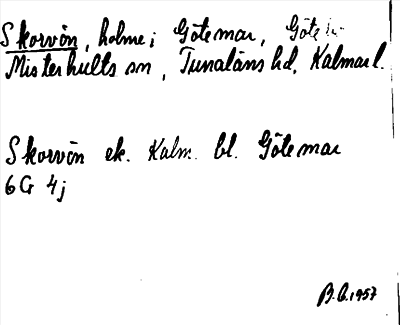 Skorvön, holme i Götemar,
Misterhults sn, Tunaläns hd, Kalmar l.
Skorvön ek. Kalm. bl. Götemar
6G 4j
B.G. 1957